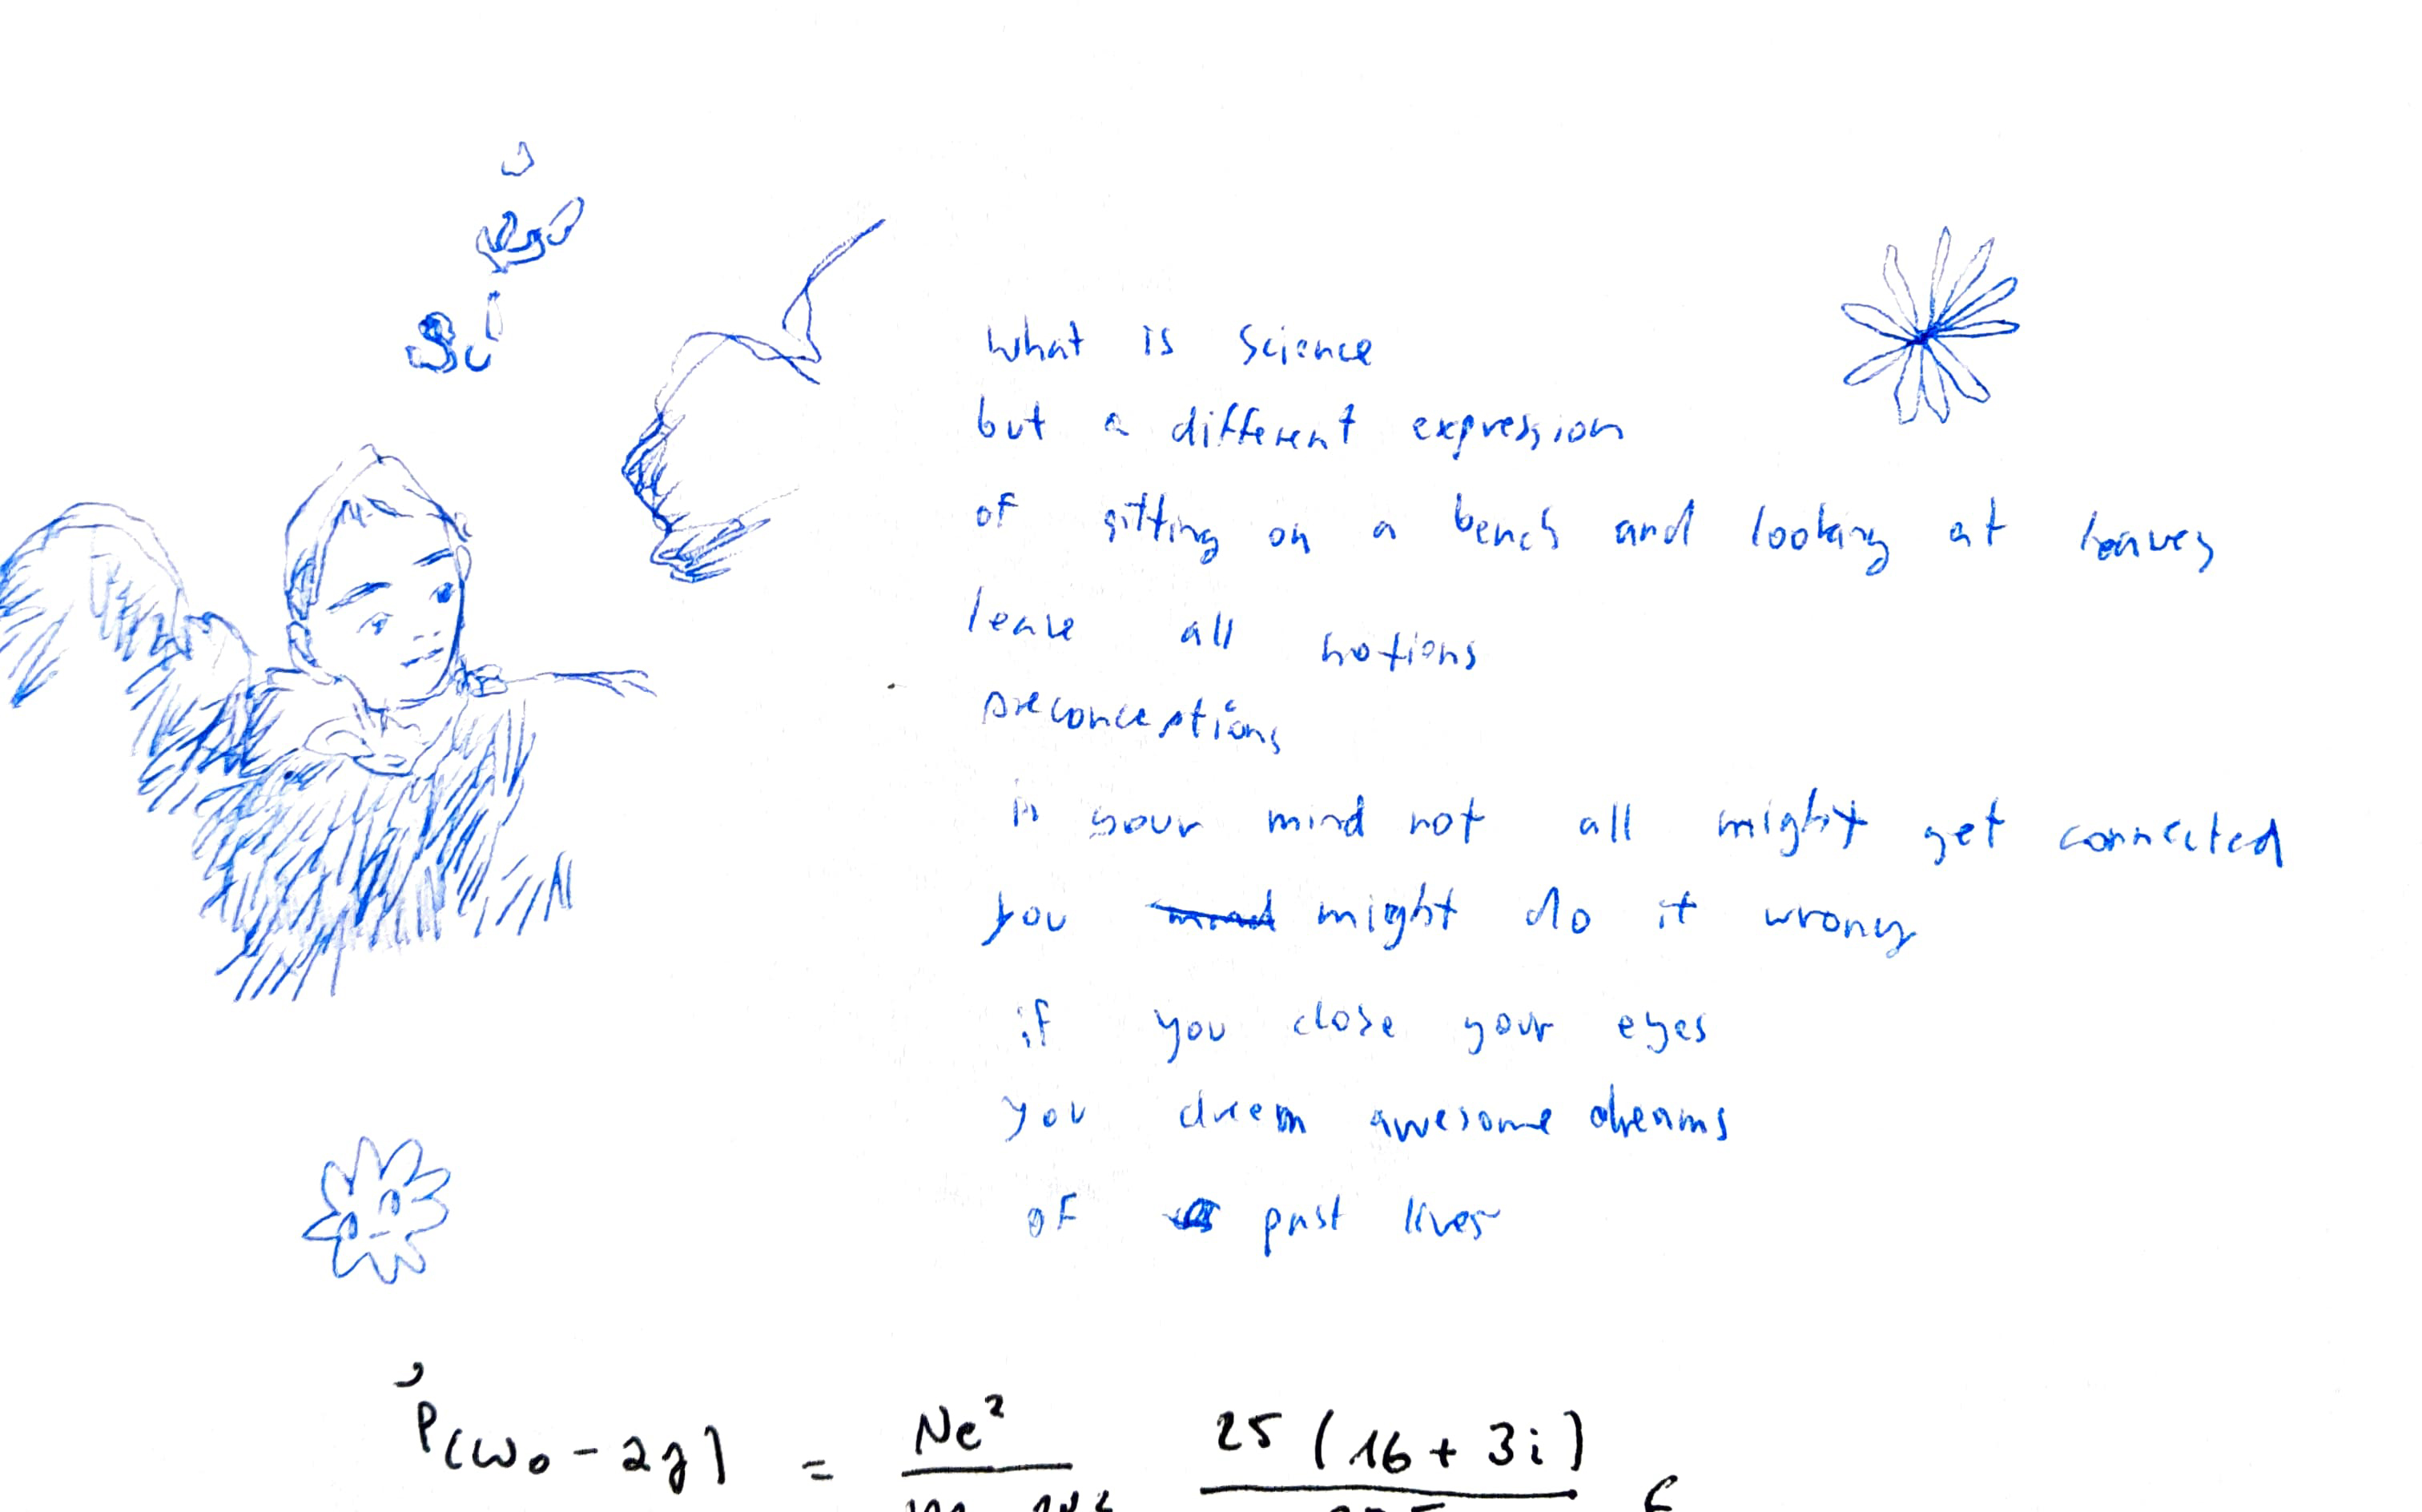 what is science
but a different expression
of sitting on a bench and looking at leaves
leave all notions
preconceptions
in your mind not all might get connected
you might do it wrong
if you close your eyes
you dreem awesome dreams
of past lives
P(ω₀ - 2γ) = Ne² 25 (16 + 3i)